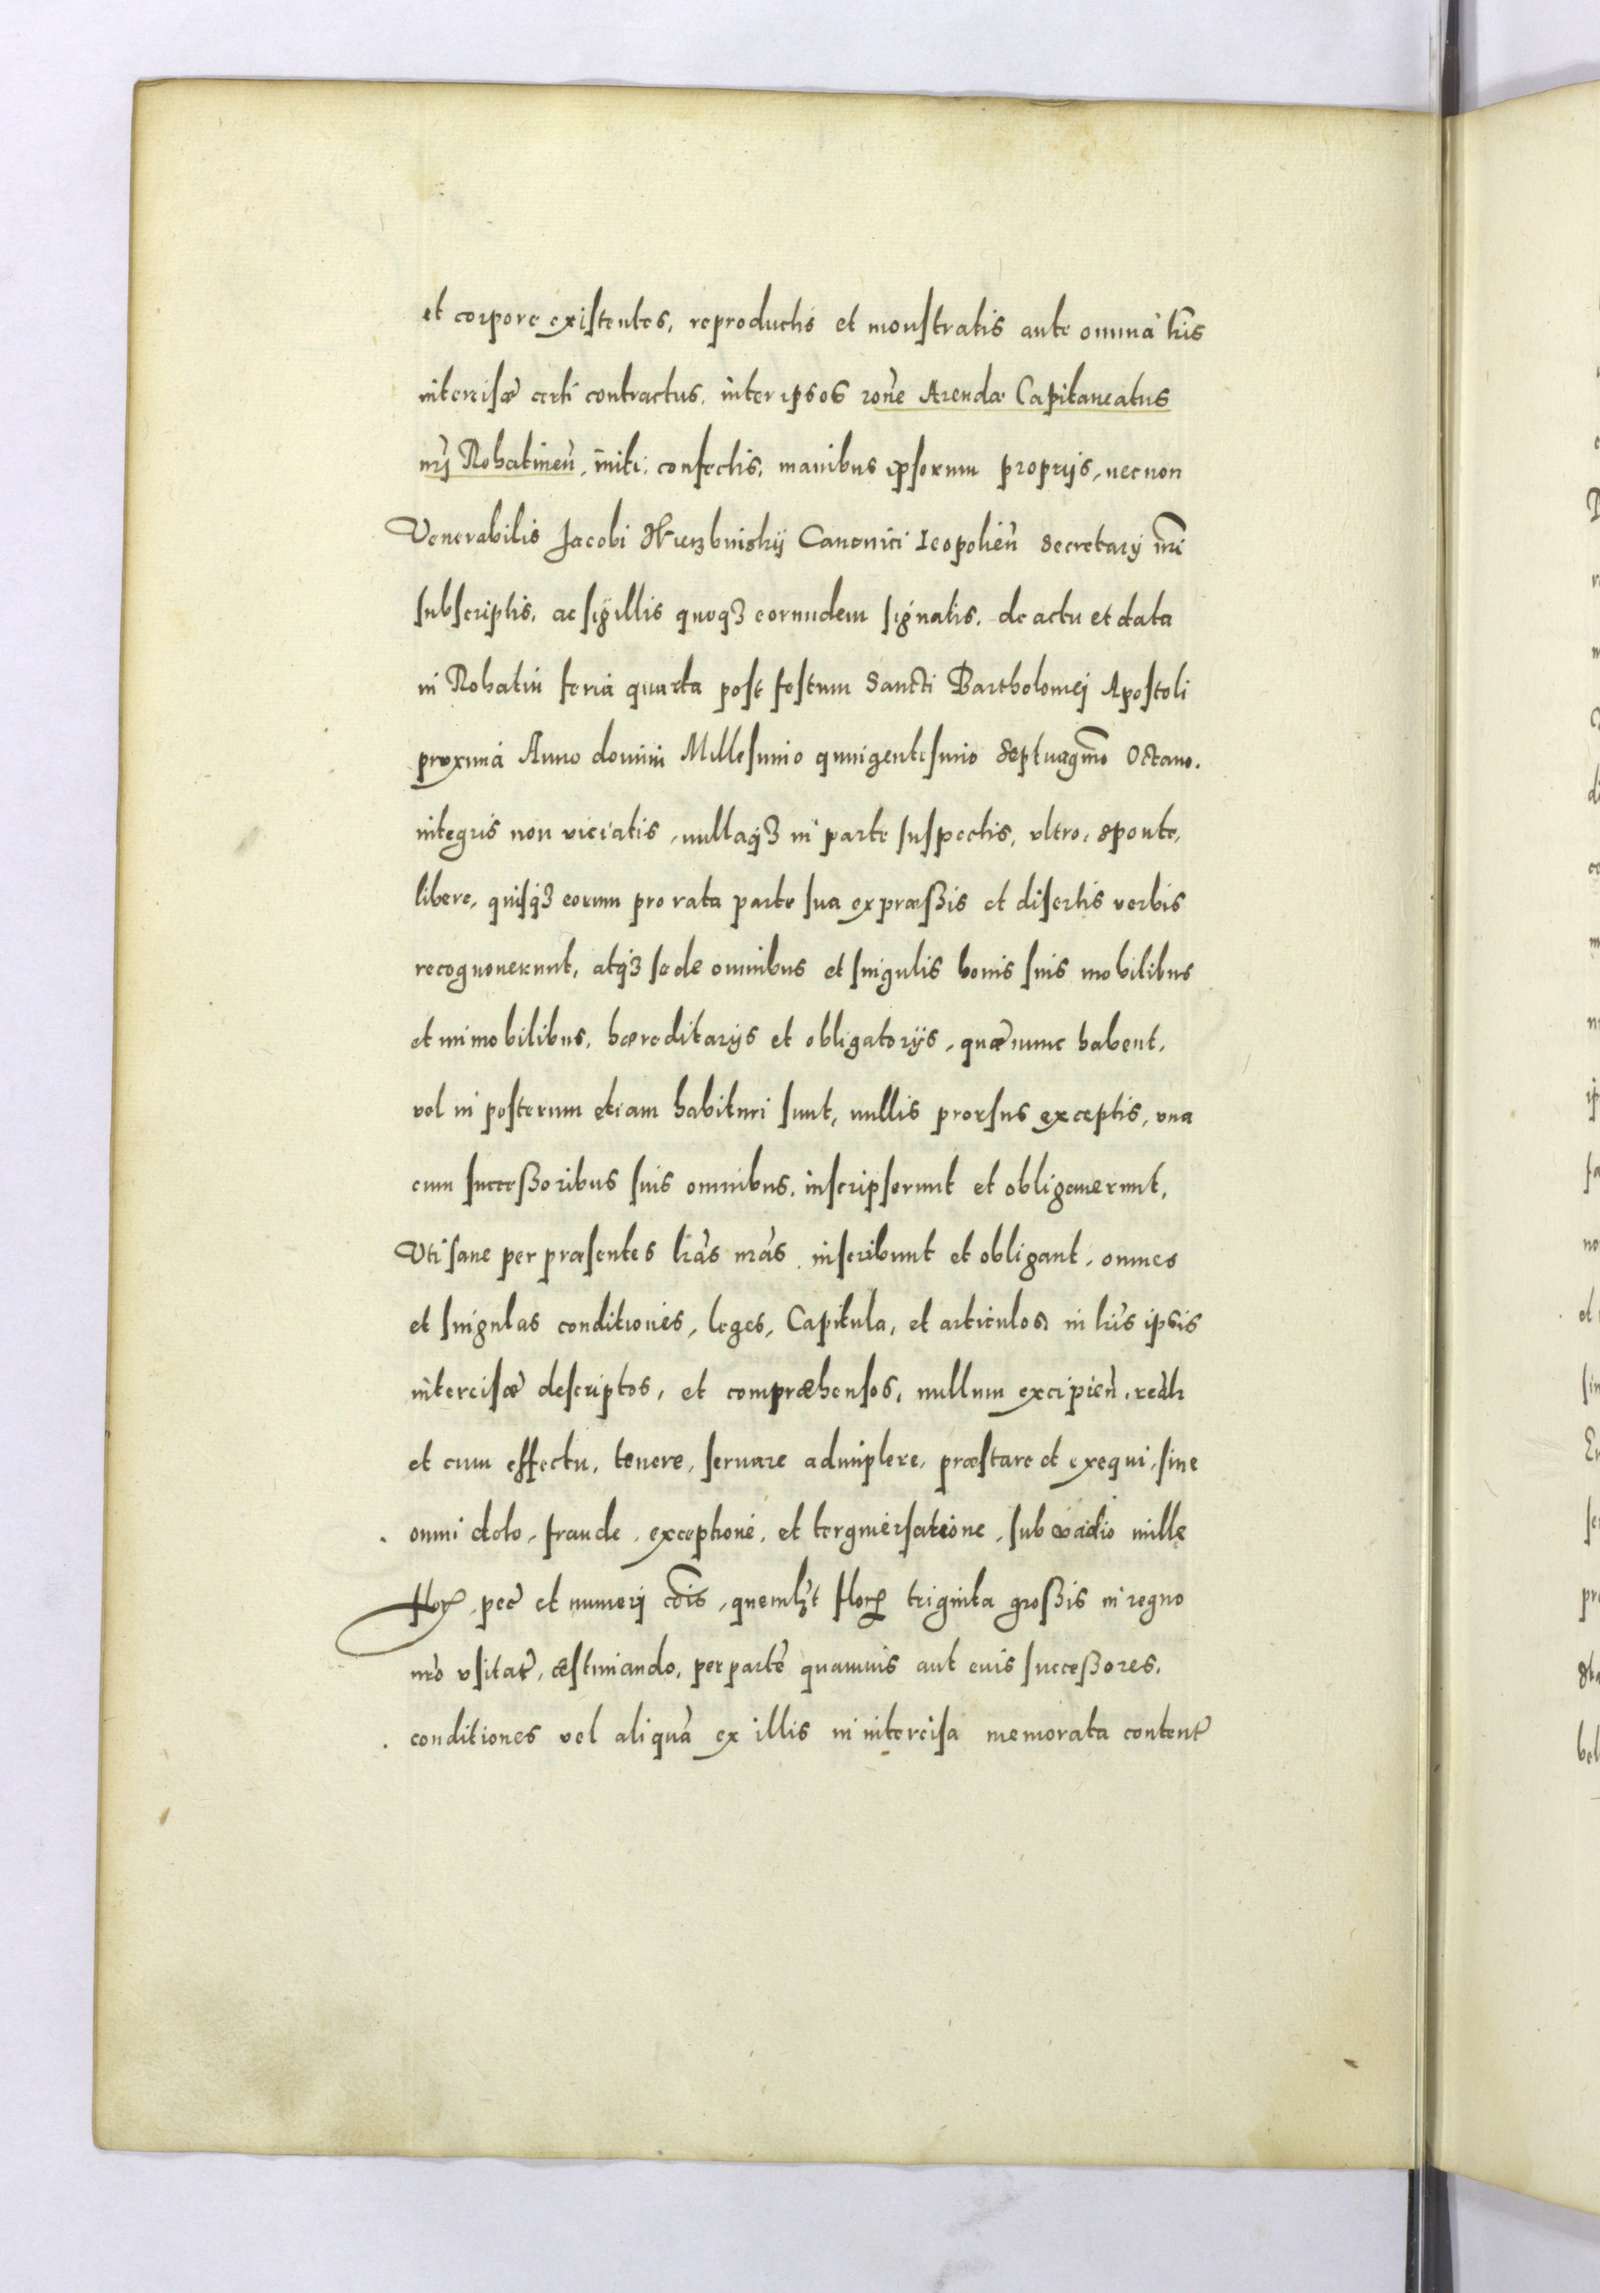 et corpore existentes, reproductis et monstratis ante omnia lr̃is
intercisæ certi contractus, inter ipsos rõne Arendæ Capitaneatus
nr̃j Rohatinen̄, initi: confectis, manibus ipsorum proprijs, necnon
Venerabilis Jacobi Canonici Leopolien̄ Secretarij nr̃i
subscriptis, ac sigillis quoqȝ eorundem signatis, de actu et data
in Rohatin feria quarta post festum Sancti Bartholomej Apostoli
proxima Anno domini Millesimo quingentesimo Septuagm̃o Octauo.
integris non viciatis, nullaqȝ in parte suspectis, vltro, sponte,
libere, quisqȝ eorum pro rata parte sua expræßis et disertis verbis
recognouerunt, atqȝ se de omnibus et singulis bonis suis mobilibus
et immobilibus, hæreditarijs et obligatorijs, quæ nunc habent,
vel in posterum etiam habituri sunt, nullis prorsus exceptis, vna
cum succeßoribus suis omnibus, inscripserunt et obligauerunt,
Vti sane per præsentes lr̃as nr̃as inscribunt et obligant, omnes
et singulas conditiones, leges, Capitula, et articulos, in lr̃is ipsis
intercisæ descriptos, et compræhensos, nullum excipien̄, realr̃
et cum effectu, tenere, seruare adimplere, præstare et exequi, sine
omni dolo, fraude, exceptione, et tergiuersatione, sub vadio mille
flor, pec̄ et numerj cõis, quemlȝt flor triginta großis in regno
nr̃o vsitat̃, æstimando, per partẽ quamuis aut euis succeßores,
conditiones vel aliquã ex illis in intercisa memorata content̃